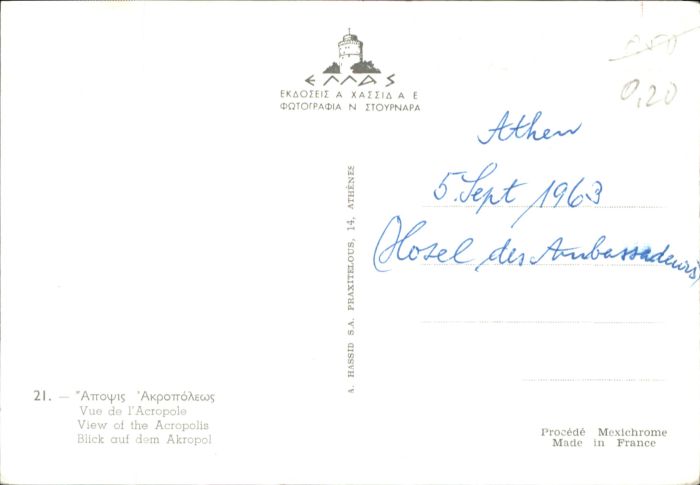 ΕΛΛΑΣ
ΕΚΔΟΣΕΙΣ Α ΧΑΣΣΙΔ Α Ε
ΦΩΤΟΓΡΑΦΙΑ Ν ΣΤΟΥΡΝΑΡΑ
0,20
Athen
5. Sept 1963
(Hotel des Ambassadeurs)
A. HASSID S.A. PRAXITELOUS, 14, ATHÈNES
21. — Ἄποψις Ἀκροπόλεως
Vue de l'Acropole
View of the Acropolis
Blick auf dem Akropol
Procédé Mexichrome
Made in France